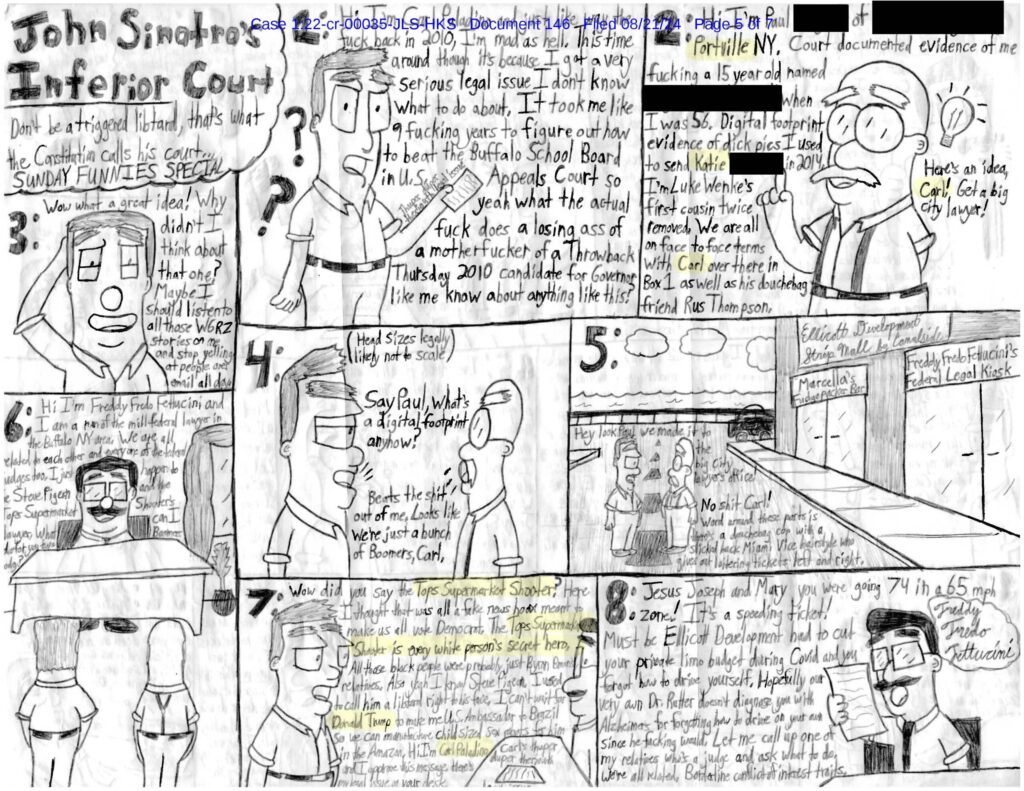 Case 1:22-cr-00035-JLS-HKS Document 146 Filed 08/21/24 Page 5 of 7
John Sinatra's
Inferior Court
Don't be a triggered libtard, that's what
the Constitution calls his court...
SUNDAY FUNNIES SPECIAL
1:
fuck back in 2010, I'm mad as hell. This time
around though it's because I got a very
serious legal issue I don't know
what to do about. It took me like
9 fucking years to figure out how
to beat the Buffalo School Board
in U.S. Appeals Court so
yeah what the actual
fuck does a losing ass of
a motherfucker of a Throwback
Thursday 2010 candidate for Governor
like me know about anything like this!
?
?
2:
Hi I'm Paul of
Portville NY. Court documented evidence of me
fucking a 15 year old named
when
I was 56. Digital footprint
evidence of dick pics I used
to send Katie in 2014
I'm Luke Wenke's
first cousin twice
removed. We are all
on face to face terms
with Carl over there in
Box 1 as well as his douchebag
friend Rus Thompson.
Here's an idea,
Carl! Get a big
city lawyer!
3:
Wow what a great idea! Why
didn't I
think about
that one?
Maybe I
should listen to
all those WGRZ
stories on me
and stop yelling
at people over
email all day
4:
(Head sizes legally
likely not to scale)
Say Paul, what's
a digital footprint
anyhow?
Beats the shit
out of me. Looks like
we're just a bunch
of Boomers, Carl.
5:
Ellicott Development
Strip Mall by Canalside
Marcella's
Fudge Packer Bar
Freddy Fredo Fettucini's
Federal Legal Kiosk
Hey look Paul we made it to
the
big city
lawyer's office!
No shit Carl!
Word around these parts is
there's a douchebag cop with a
slicked back Miami Vice hairstyle who
gives out loitering tickets left and right.
6:
Hi I'm Freddy Fredo Fettucini and
I am a run of the mill federal lawyer in
the Buffalo NY area. We are all
related to each other and every one of the federal
judges too. I just happen to
be Steve Pigeon and the
Tops Supermarket Shooter's
lawyer. What can I
do for you two
7:
Wow did you say the Tops Supermarket Shooter? Here
I thought that was all a fake news hoax meant to
make us all vote Democrat. The Tops Supermarket
Shooter is every white person's secret hero.
All those black people were probably just Byron Brown's
relatives. Also yeah I know Steve Pigeon. I used
to call him a libtard right to his face. I can't wait for
Donald Trump to make me U.S. Ambassador to Brazil
so we can manufacture child sized sex robots for him
in the Amazon. Hi I'm Carl Paladino
and I approve this message. Here's
my legal issue on your desk.
Carl's thuper
duper
8:
Jesus Joseph and Mary you were going 74 in a 65 mph
zone! It's a speeding ticket.
Must be Ellicot Development had to cut
your private limo budget during Covid and you
forgot how to drive yourself. Hopefully our
very own Dr. Rutter doesn't diagnose you with
Alzheimers for forgetting how to drive on your own
since he fucking would. Let me call up one of
my relatives who's a judge and ask what to do.
We're all related. Borderline conflict of interest traits.
Freddy
Fredo
Fettucini